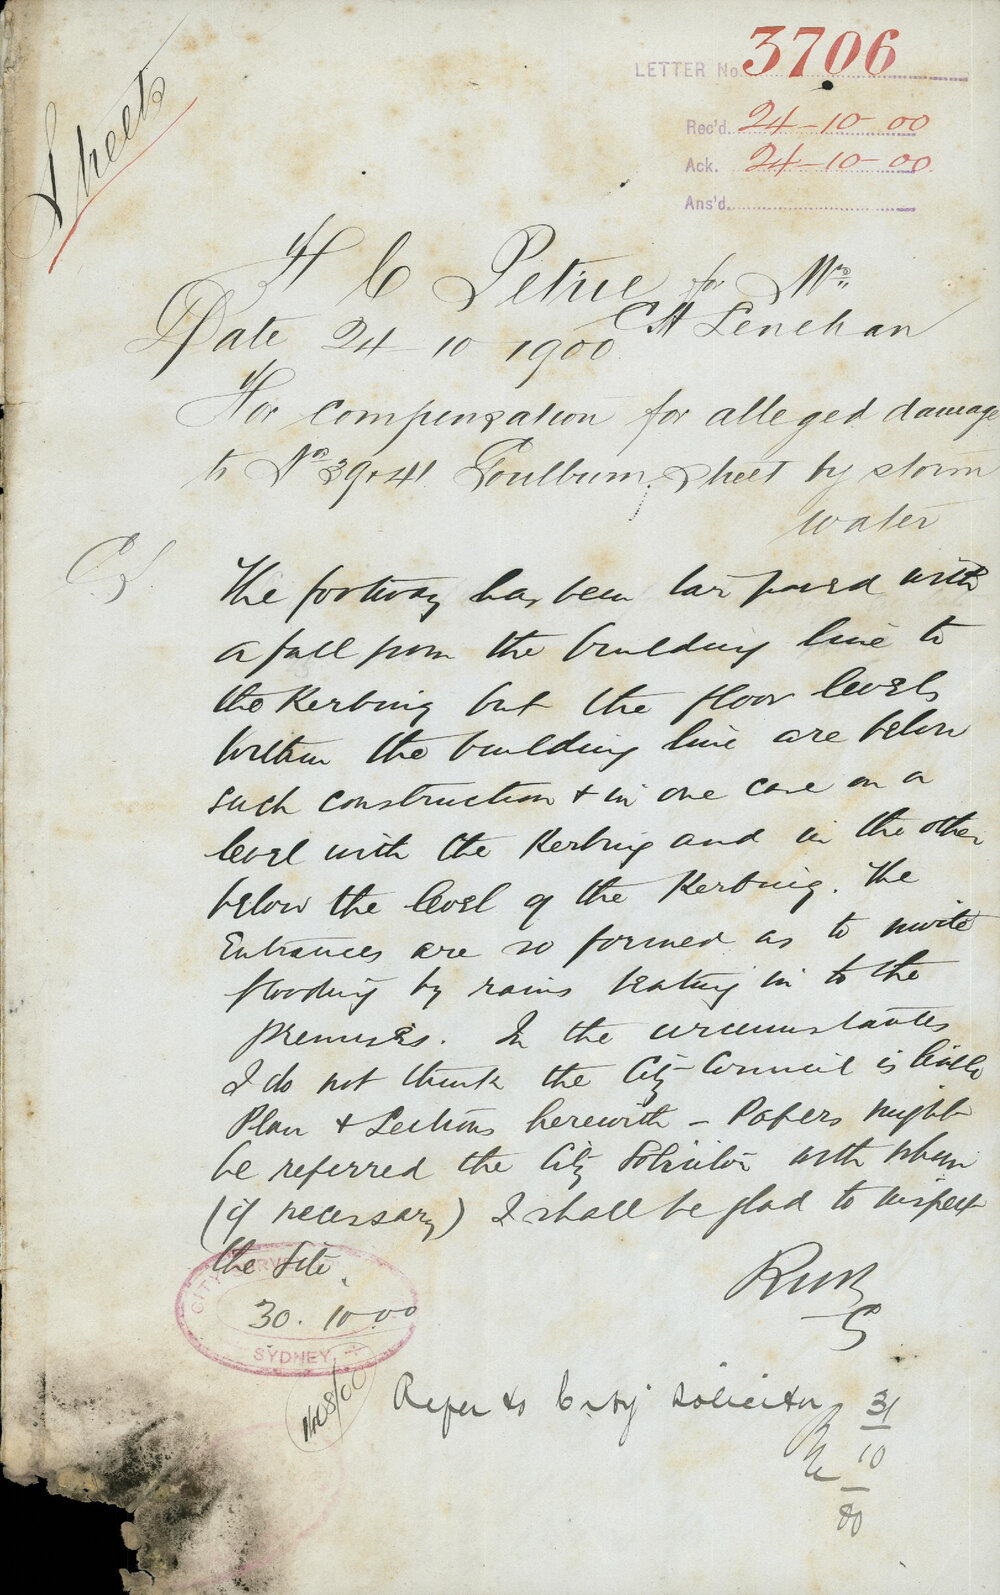 Streets
LETTER No. 3706
Rec'd. 24-10-00
Ack. 24-10-00
Ans'd.
H C Petrie for Mrs
C H Lenehan
Date 24 10 1900
For compensation for alleged damage
to Nos 39 & 41 Goulburn Street by storm
water
CS.
The footway has been tar paved with
a fall from the building line to
the Kerbing but the floor levels
within the building line are below
such construction & in one case on a
level with the Kerbing and in the other
below the level of the Kerbing. The
Entrances are so formed as to invite
flooding by rains beating in to the
premises. In the circumstances
I do not think the City Council is liable
Plan & Sections herewith - Papers might
be referred the City Solicitor with whom
(if necessary) I shall be glad to inspect
the Site.
RWR
CS
CITY SURVEYOR
30. 10 00
SYDNEY
Refer to City Solicitor
31
10
00